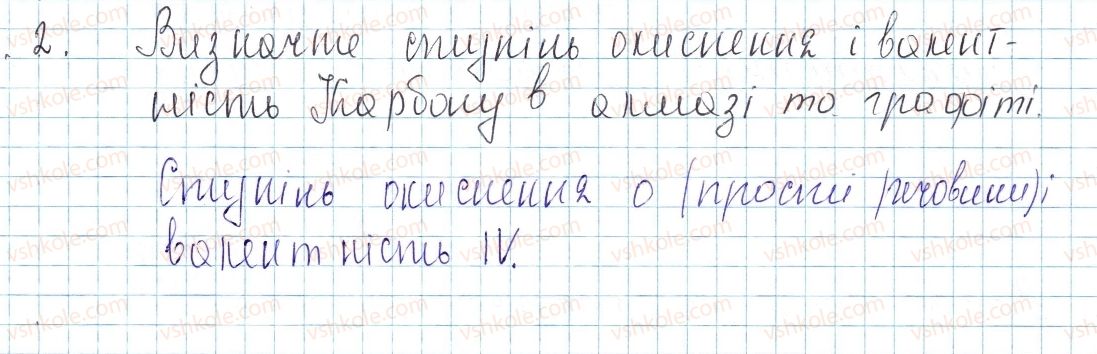 2. Визначте ступінь окиснення і валент-
ність Карбону в алмазі та графіті.
Ступінь окиснення 0 (прості речовини) і
валентність IV.